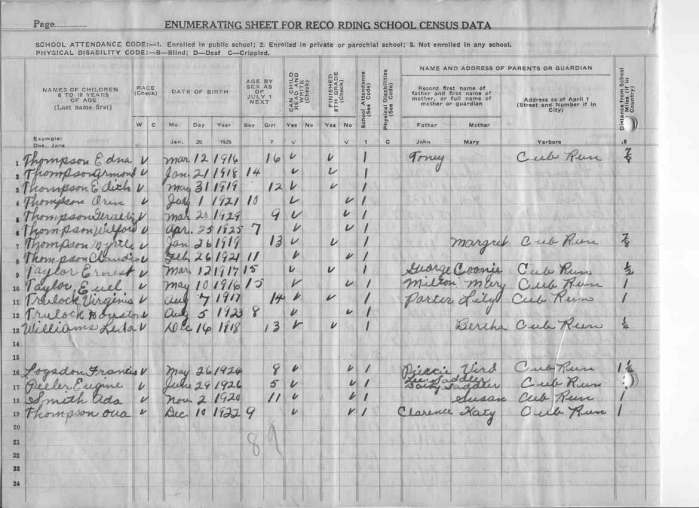 Page
ENUMERATING SHEET FOR RECORDING SCHOOL CENSUS DATA
SCHOOL ATTENDANCE CODE:—1. Enrolled in public school; 2. Enrolled in private or parochial school; 3. Not enrolled in any school.
PHYSICAL DISABILITY CODE:—B—Blind; D—Deaf C—Crippled.
NAMES OF CHILDREN 6 TO 18 YEARS OF AGE (Last name first) RACE (Check) DATE OF BIRTH AGE BY SEX AS OF JULY 1 NEXT CAN CHILD READ AND WRITE (Check) FINISHED 8TH GRADE (Check) School Attendance (See Code) Physical Disabilities (See Code) NAME AND ADDRESS OF PARENTS OR GUARDIAN Distance from School
Record first name of father and first name of mother, or full name of mother or guardian Address as of April 1 (Street and Number if in City)
W C Mo. Day Year Boy Girl Yes No Yes No Father Mother
Example: Doe, Jane Jan. 25 1925 John Mary Yerbora
1 Thompson Edna v Mar 12 1916 16 v v 1 Toney Cub Run
2 Thompson v Jan. 21 1918 14 v v 1
3 Thompson Edith v May 31 1919 12 v v 1
4 Thompson Oren v July 1 1921 10 v 1
5 Thompson v Mar 20 1929 9 v v 1
6 Thompson Wilford v Apr. 25 1925 7 v v 1
7 Thompson Myrtle v Jan 26 1919 13 v v 1 Margret Cub Run
8 Thompson v Feb 26 1921 11 v v 1
9 Taylor Ernest v Mar. 12 1917 15 v v 1 George Coonie Cub Run ½
10 Taylor, Euel v May 10 1916 15 v v 1 Milton Mary Cub Run 1
11 Trulock Virginia v Aug 7 1917 14 v v 1 Porter Lily Cub Run 1
12 Trulock v Aug 5 1923 8 v v 1
13 Williams Leta v Dec 16 1918 13 v v 1 Bertha Cub Run
14
15
16 Logsdon Francis v May 26 1924 8 v v 1 Verd Cub Run
17 Peeler Eugene v June 29 1926 5 v v 1 Cub Run
18 Smith Ada v Nov 2 1920 11 v v 1 Susan Cub Run 1
19 Thompson Ova v Dec 10 1922 9 v v 1 Clarence Katy Cub Run 1
20
21
22
23
24
89